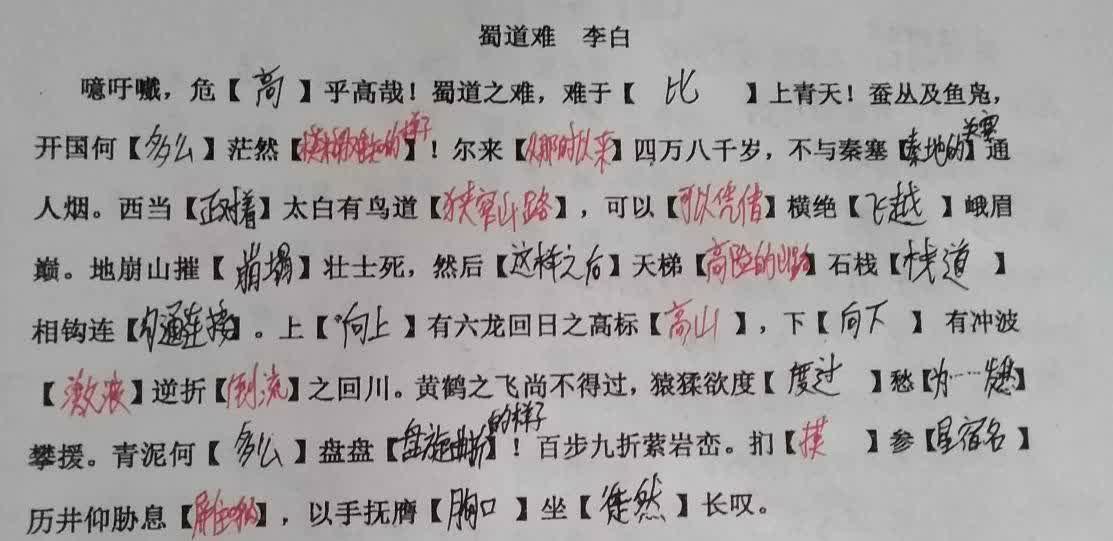 蜀道难 李白
噫吁嚱，危【高】乎高哉！蜀道之难，难于【比】上青天！蚕丛及鱼凫，
开国何【多么】茫然【模糊难知的样子】！尔来【从那时以来】四万八千岁，不与秦塞【秦地的关塞】通
人烟。西当【正对着】太白有鸟道【狭窄山路】，可以【可以凭借】横绝【飞越】峨眉
巅。地崩山摧【崩塌】壮士死，然后【这样之后】天梯【高险的山路】石栈【栈道】
相钩连【勾通连接】。上【向上】有六龙回日之高标【高山】，下【向下】有冲波
【激波】逆折【倒流】之回川。黄鹤之飞尚不得过，猿猱欲度【度过】愁【为……发愁】
攀援。青泥何【多么】盘盘【盘旋曲折的样子】！百步九折萦岩峦。扪【摸】参【星宿名】
历井仰胁息【屏住呼吸】，以手抚膺【胸口】坐【徒然】长叹。